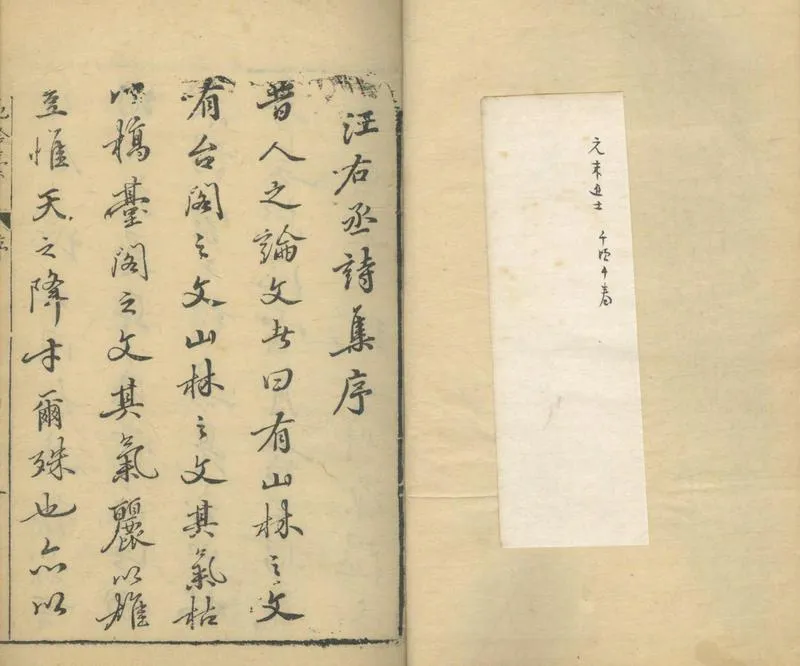 元末進士
汪右丞詩集序
昔人之論文者曰有山林之文
有台閣之文山林之文其氣枯
以槁臺閣之文其氣麗以雄
豈惟天之降才爾殊也亦以